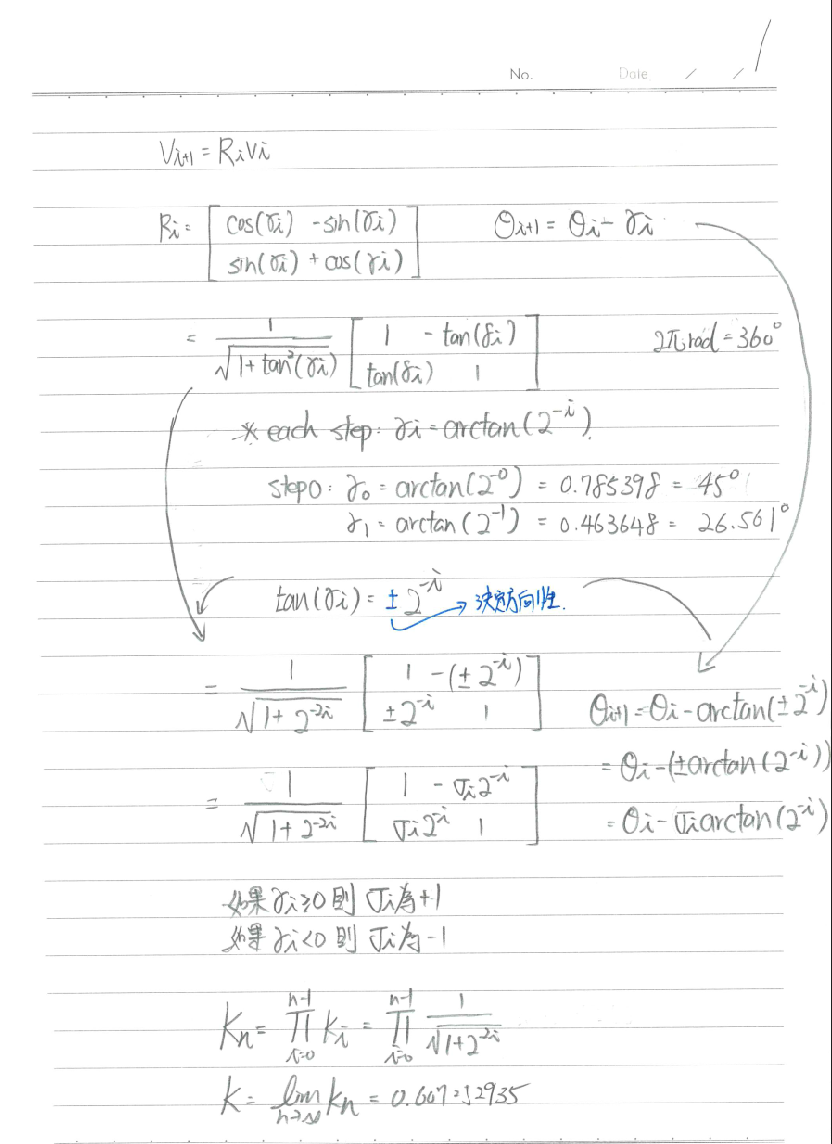 No.
Date / /
V_{i+1} = R_i v_i
R_i = [ cos(γi) -sin(γi)
sin(γi) + cos(γi) ]
θ_{i+1} = θ_i - γ_i
= 1/√(1+tan²(γi)) [ 1 - tan(γi)
tan(γi) 1 ]
2π rad = 360°
* each step: γi = arctan(2^{-i})
step0: γ₀ = arctan(2^{-0}) = 0.785398 = 45°
γ₁ = arctan(2^{-1}) = 0.463648 = 26.561°
tan(γi) = ± 2^{-i} → 決定方向性.
= 1/√(1+2^{-2i}) [ 1 -(±2^{-i})
±2^{-i} 1 ]
θ_{i+1} = θi - arctan(±2^{-i})
= θi - (±arctan(2^{-i}))
= 1/√(1+2^{-2i}) [ 1 - σi2^{-i}
σi2^{-i} 1 ]
= θi - σi arctan(2^{-i})
如果 γi ≥ 0 則 σi 為 +1
如果 γi < 0 則 σi 為 -1
K_n = ∏_{i=0}^{n-1} k_i = ∏_{i=0}^{n-1} 1/√(1+2^{-2i})
K = lim_{n→∞} k_n =